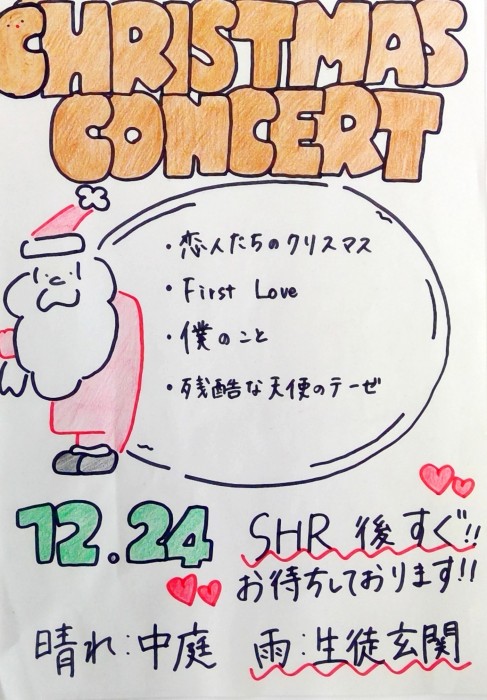 CHRISTMAS
CONCERT
・恋人たちのクリスマス
・First Love
・僕のこと
・残酷な天使のテーゼ
12.24
SHR 後すぐ!!
お待ちしております!!
晴れ:中庭 雨:生徒玄関